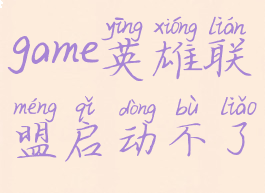 yīng xióng lián
game英雄联
méng qǐ dòng bù liǎo
盟启动不了